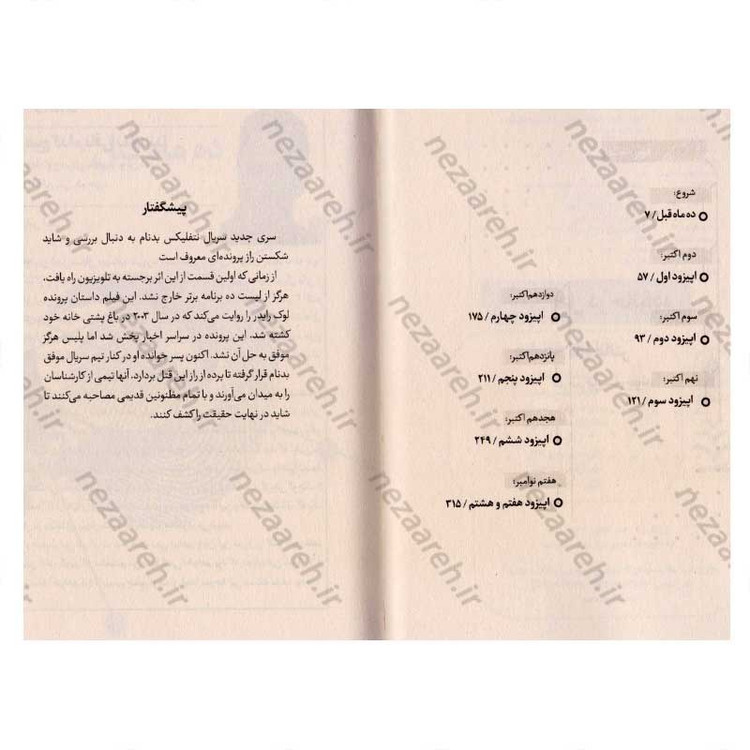 شروع:
ده ماه قبل / ۷
دوم اکتبر:
اپیزود اول / ۵۷
سوم اکتبر:
اپیزود دوم / ۹۳
نهم اکتبر:
اپیزود سوم / ۱۲۱
دوازدهم اکتبر:
اپیزود چهارم / ۱۷۵
پانزدهم اکتبر:
اپیزود پنجم / ۲۱۱
هجدهم اکتبر:
اپیزود ششم / ۲۴۹
هفتم نوامبر:
اپیزود هفتم و هشتم / ۳۱۵
پیشگفتار
سری جدید سریال نتفلیکس بدنام به دنبال بررسی و شاید
شکستن راز پرونده‌ای معروف است
از زمانی که اولین قسمت از این اثر برجسته به تلویزیون راه یافت،
هرگز از لیست ده برنامه برتر خارج نشد. این فیلم داستان پرونده
لوک رایدر را روایت می‌کند که در سال ۲۰۰۳ در باغ پشتی خانه خود
کشته شد. این پرونده در سراسر اخبار پخش شد اما پلیس هرگز
موفق به حل آن نشد. اکنون پسر خوانده او در کنار تیم سریال موفق
بدنام قرار گرفته تا پرده از راز این قتل بردارد. آنها تیمی از کارشناسان
را به میدان می‌آورند و با تمام مظنونین قدیمی مصاحبه می‌کنند تا
شاید در نهایت حقیقت را کشف کنند.
nezaareh.ir
nezaareh.ir
nezaareh.ir
nezaareh.ir
nezaareh.ir
nezaareh.ir
nezaareh.ir
nezaareh.ir